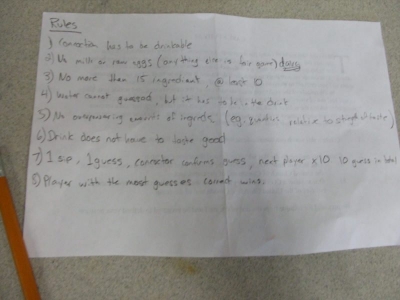 Rules
1) Concoction has to be drinkable
2) No milk or raw eggs (anything else is fair game) dairy
3) No more than 15 ingredients, @ least 10
4) Water cannot guessed, but it has to be in the drink
5) No overpowering amounts of ingredients (eg. relative to strength of taste)
6) Drink does not have to taste good
7) 1 sip, 1 guess, concoctor confirms guess, next player x10 10 guess in total
8) Player with the most guesses correct wins.